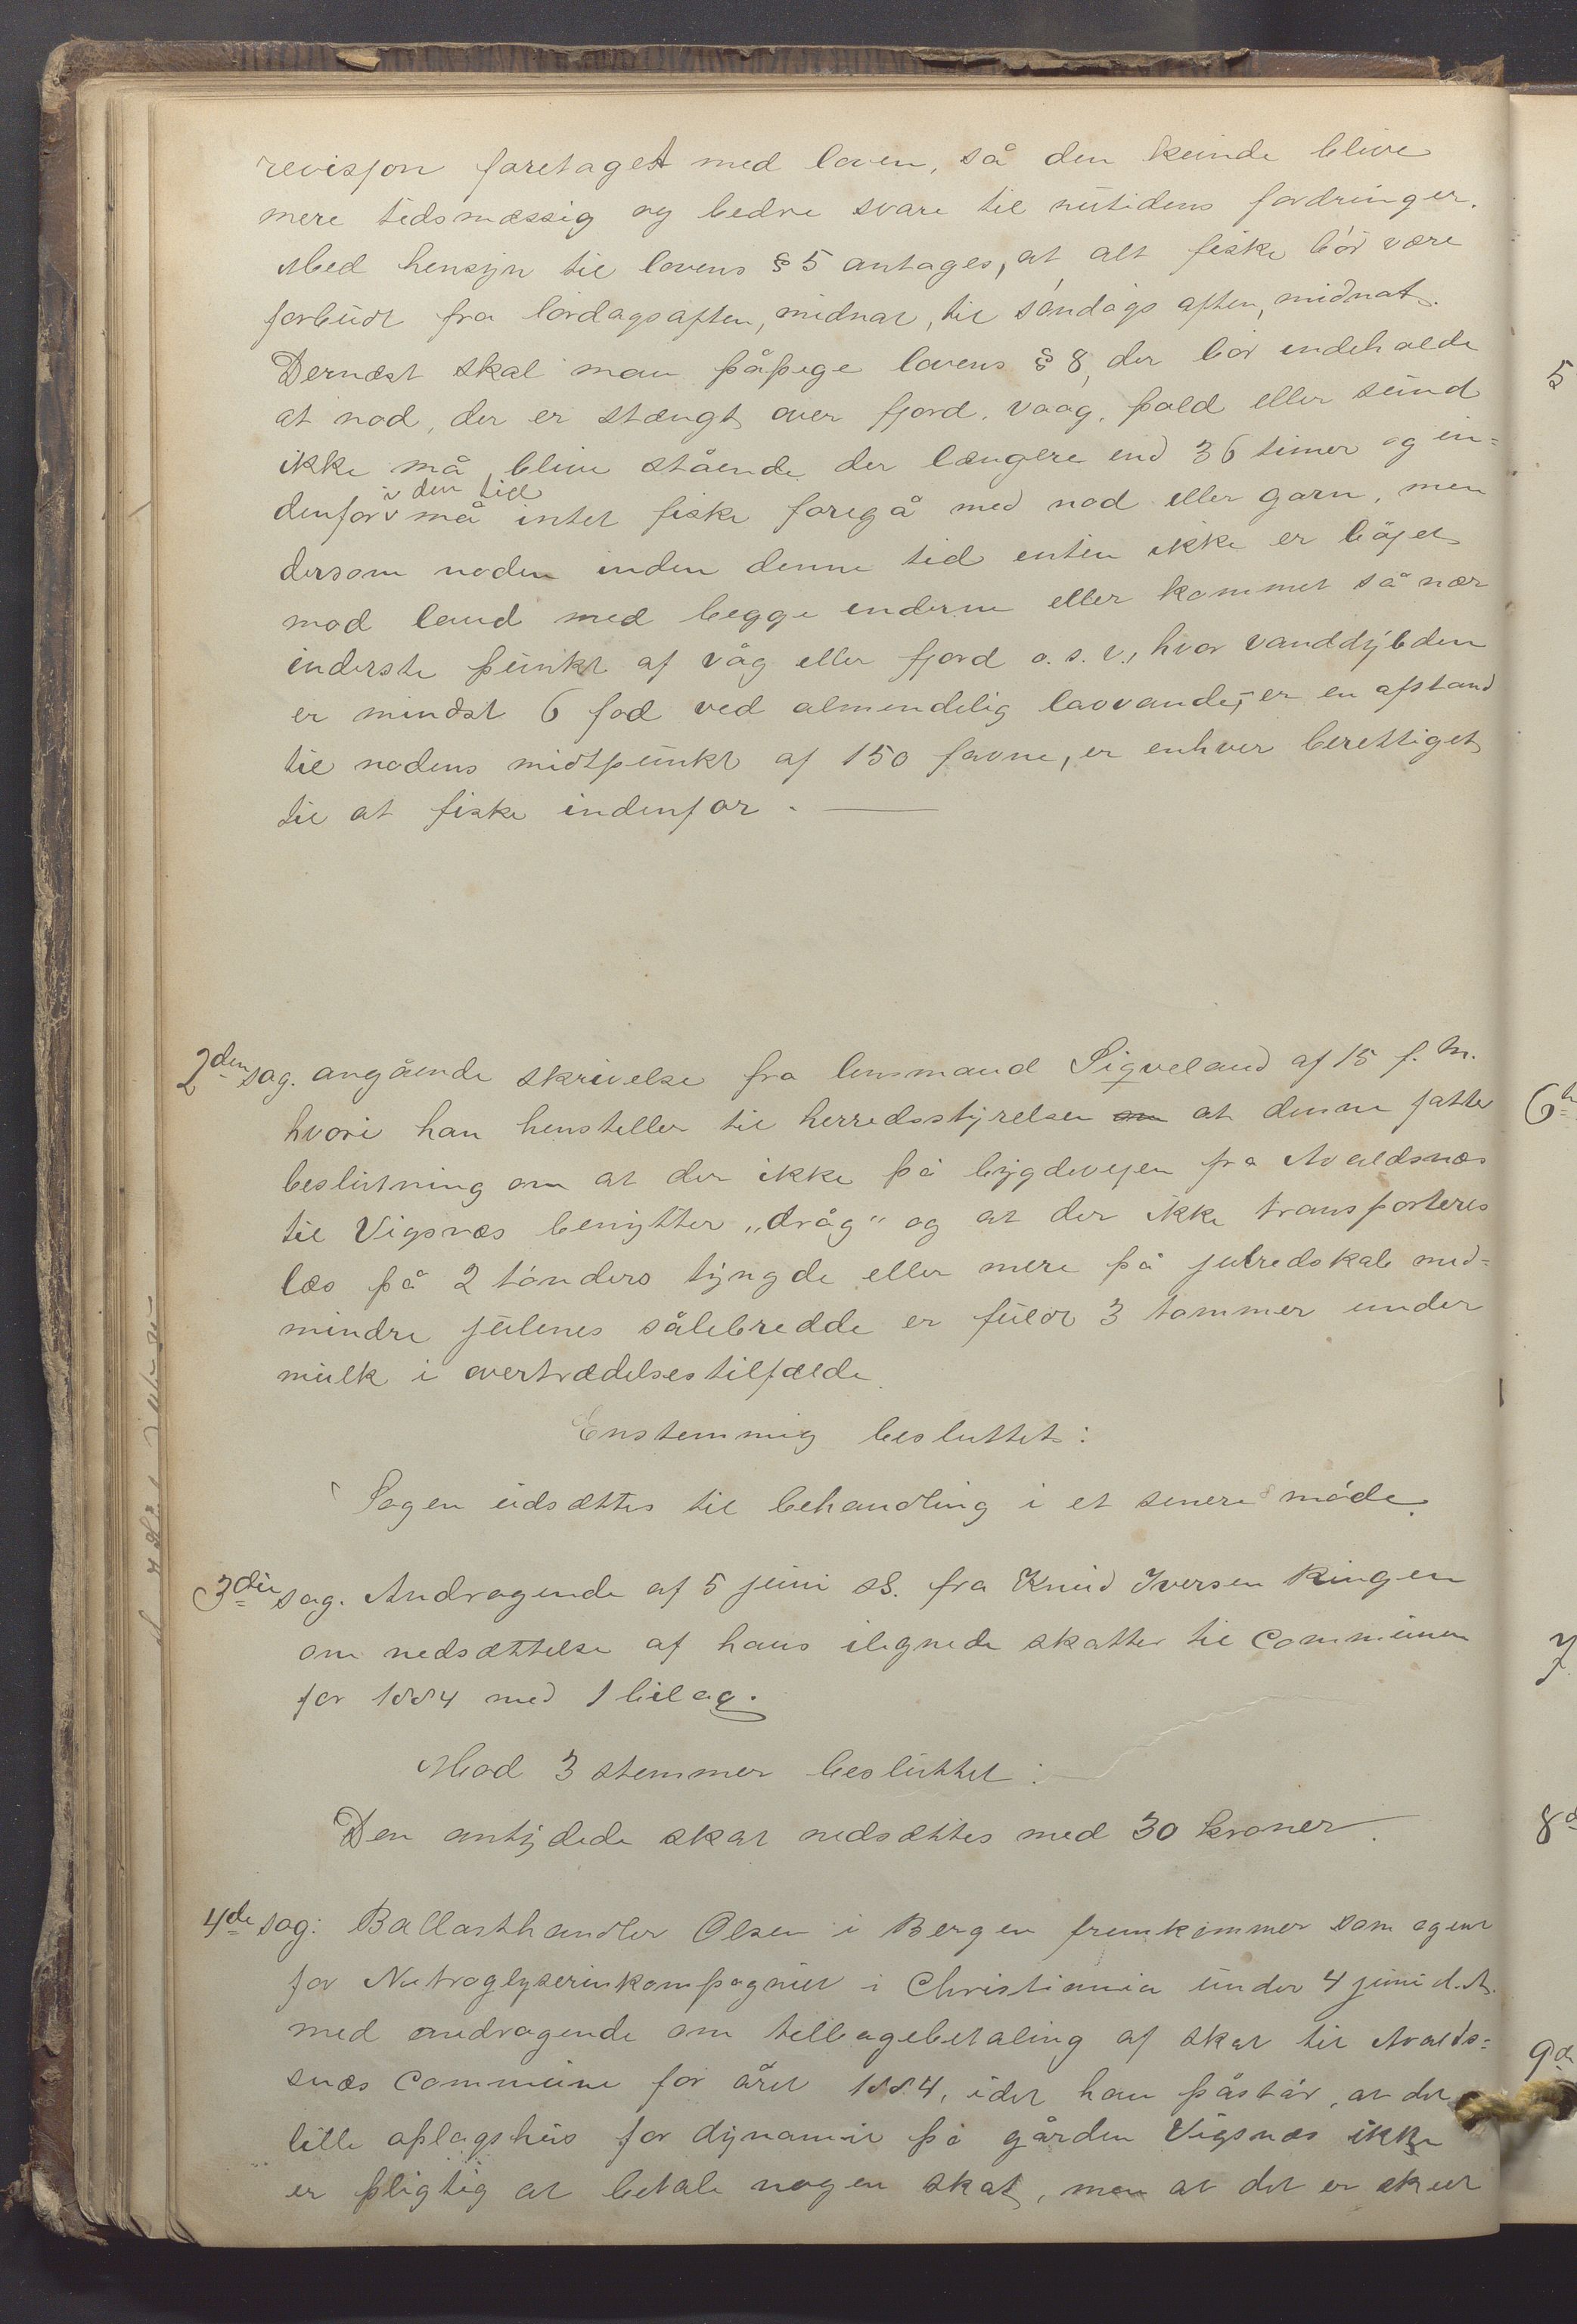 revisjon foretaget med loven, så den kunde blive
mere tidsmæssig og bedre svare til nutidens fordringer.
Med hensyn til lovens § 5 antages, at alt fiske bör være
forbudt fra lördagsaften, midnat, til söndags aften, midnat.
Dernæst skal man påpege lovens § 8, der bör indeholde
at nod, der er stængt over fjord, vaag, pold eller sund
ikke må blive stående der længere end 36 timer og in=
i den tid
denfor må intet fiske foregå med nod eller garn, men
dersom noden inden denne tid enten ikke er böjet
mod land med begge enderne eller kommet så nær
inderste punkt af våg eller fjord o. s. v., hvor vanddybden
er mindst 6 fod ved almindelig lavvande, er en afstand
til nodens midtpunkt af 150 favne, er enhver berettiget
til at fiske indenfor. —
2den sag. angående skrivelse fra lensmand Siqveland af 15 f. M.
hvori han henstiller til herredsstyrelsen om at denne fatter
beslutning om at der ikke på bygdevejen fra Avaldsnæs
til Vigsnæs benytter „dråg" og at der ikke transporteres
læs på 2 tönders tyngde eller mere på julredskab med=
mindre julenes sålebredde er fuldt 3 tommer under
mulk i overtrædelsestilfælde
Enstemmig besluttet:
Sagen udsættes til behandling i et senere möde.
3die sag. Andragende af 5 juni ds. fra Knud Iversen Ringen
om nedsættelse af hans ilignede skatter til Communen
for 1884 med 1 bilag.
Mod 3 stemmer besluttet:
Den antydede skat nedsættes med 30 kroner.
4de sag: Ballasthandler Olsen i Bergen fremkommer som agent
for Nitroglyserinkompagniet i Christiania under 4 juni d. A.
med andragende om tilbagebetaling af skat til Avalds=
snæs Commune for året 1884, idet han påstår, at det
lille oplagshus for dynamit på gården Vigsnæs ikke
er pligtig at betale nogen skat, men at det er skeet
5
6te
7
8d
9de